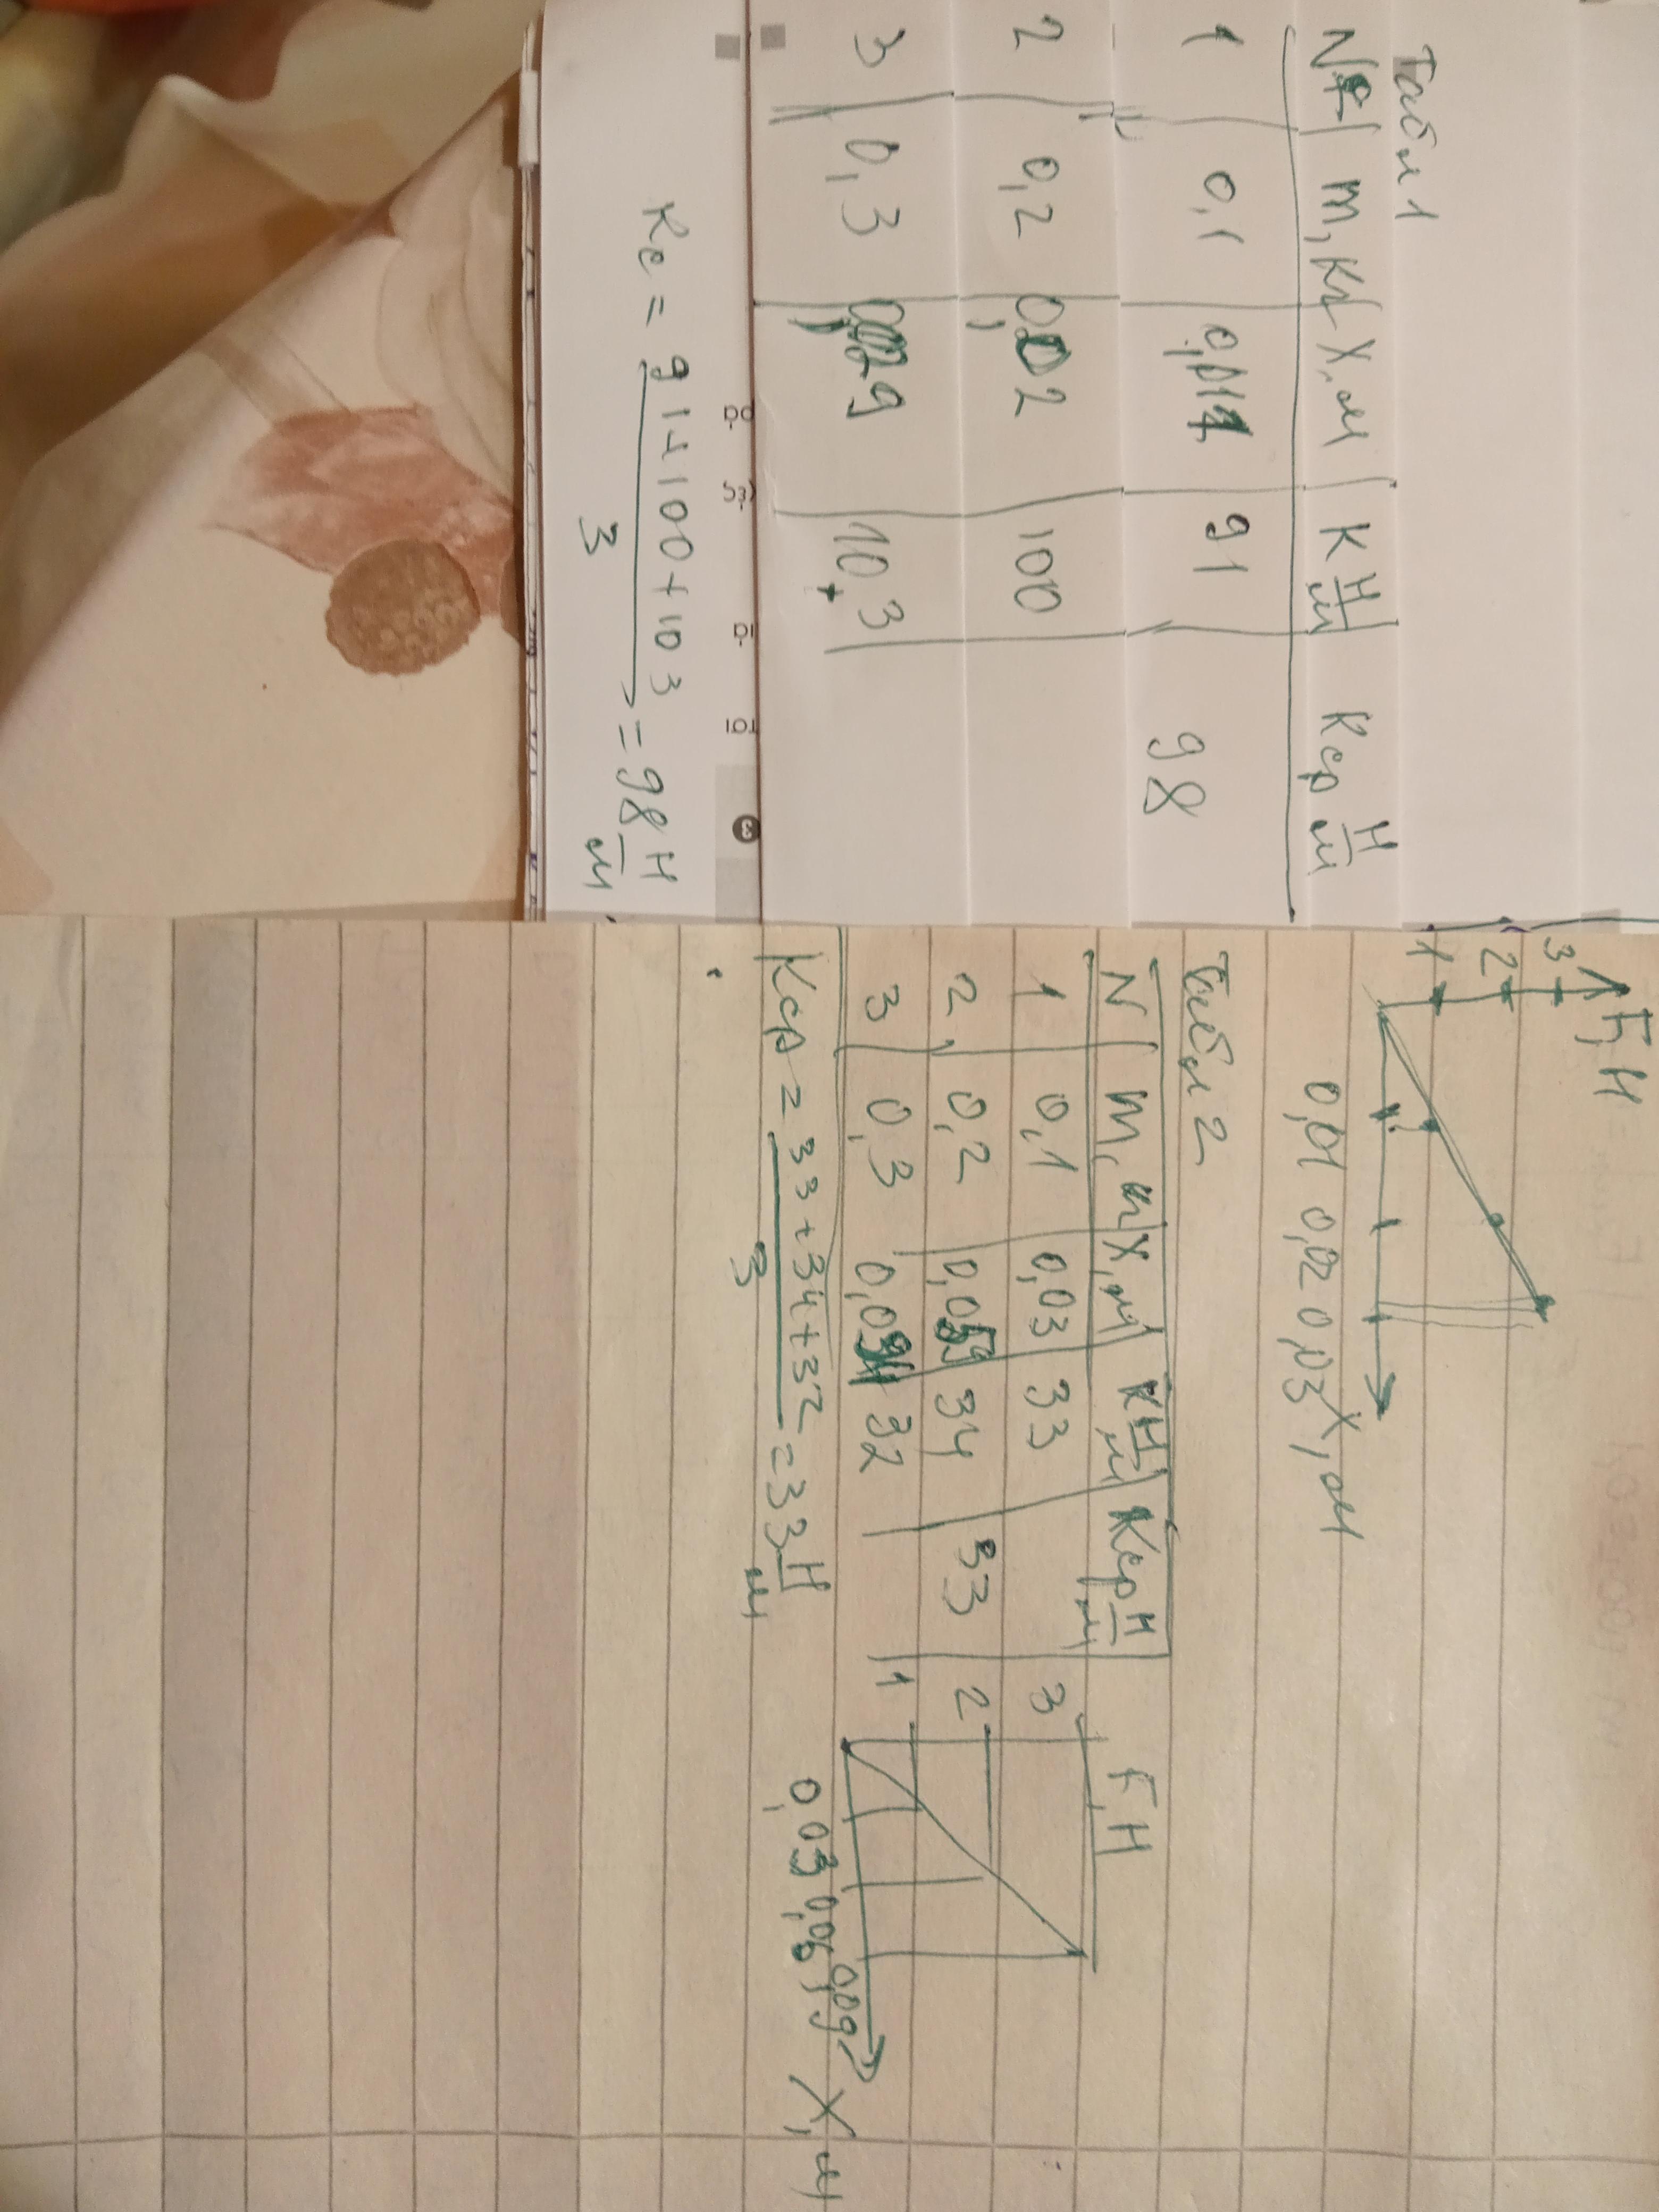 Табл 1
№ m, кг X, м К Н/м Кср Н/м
1 0,1 0,011 91 98
2 0,2 0,02 100
3 0,3 0,029 10,3
Кс = 91+100+103 / 3 = 98 Н/м
F, Н
3
2
1
0,01 0,02 0,03 X, м
Табл 2
N m, кг X, м К Н/м Кср Н/м
1 0,1 0,03 33
2 0,2 0,059 34 33
3 0,3 32
Кср = 33+34+32 / 3 = 33 Н/м
F, Н
3
2
1
0,03 0,06 0,09 X, м